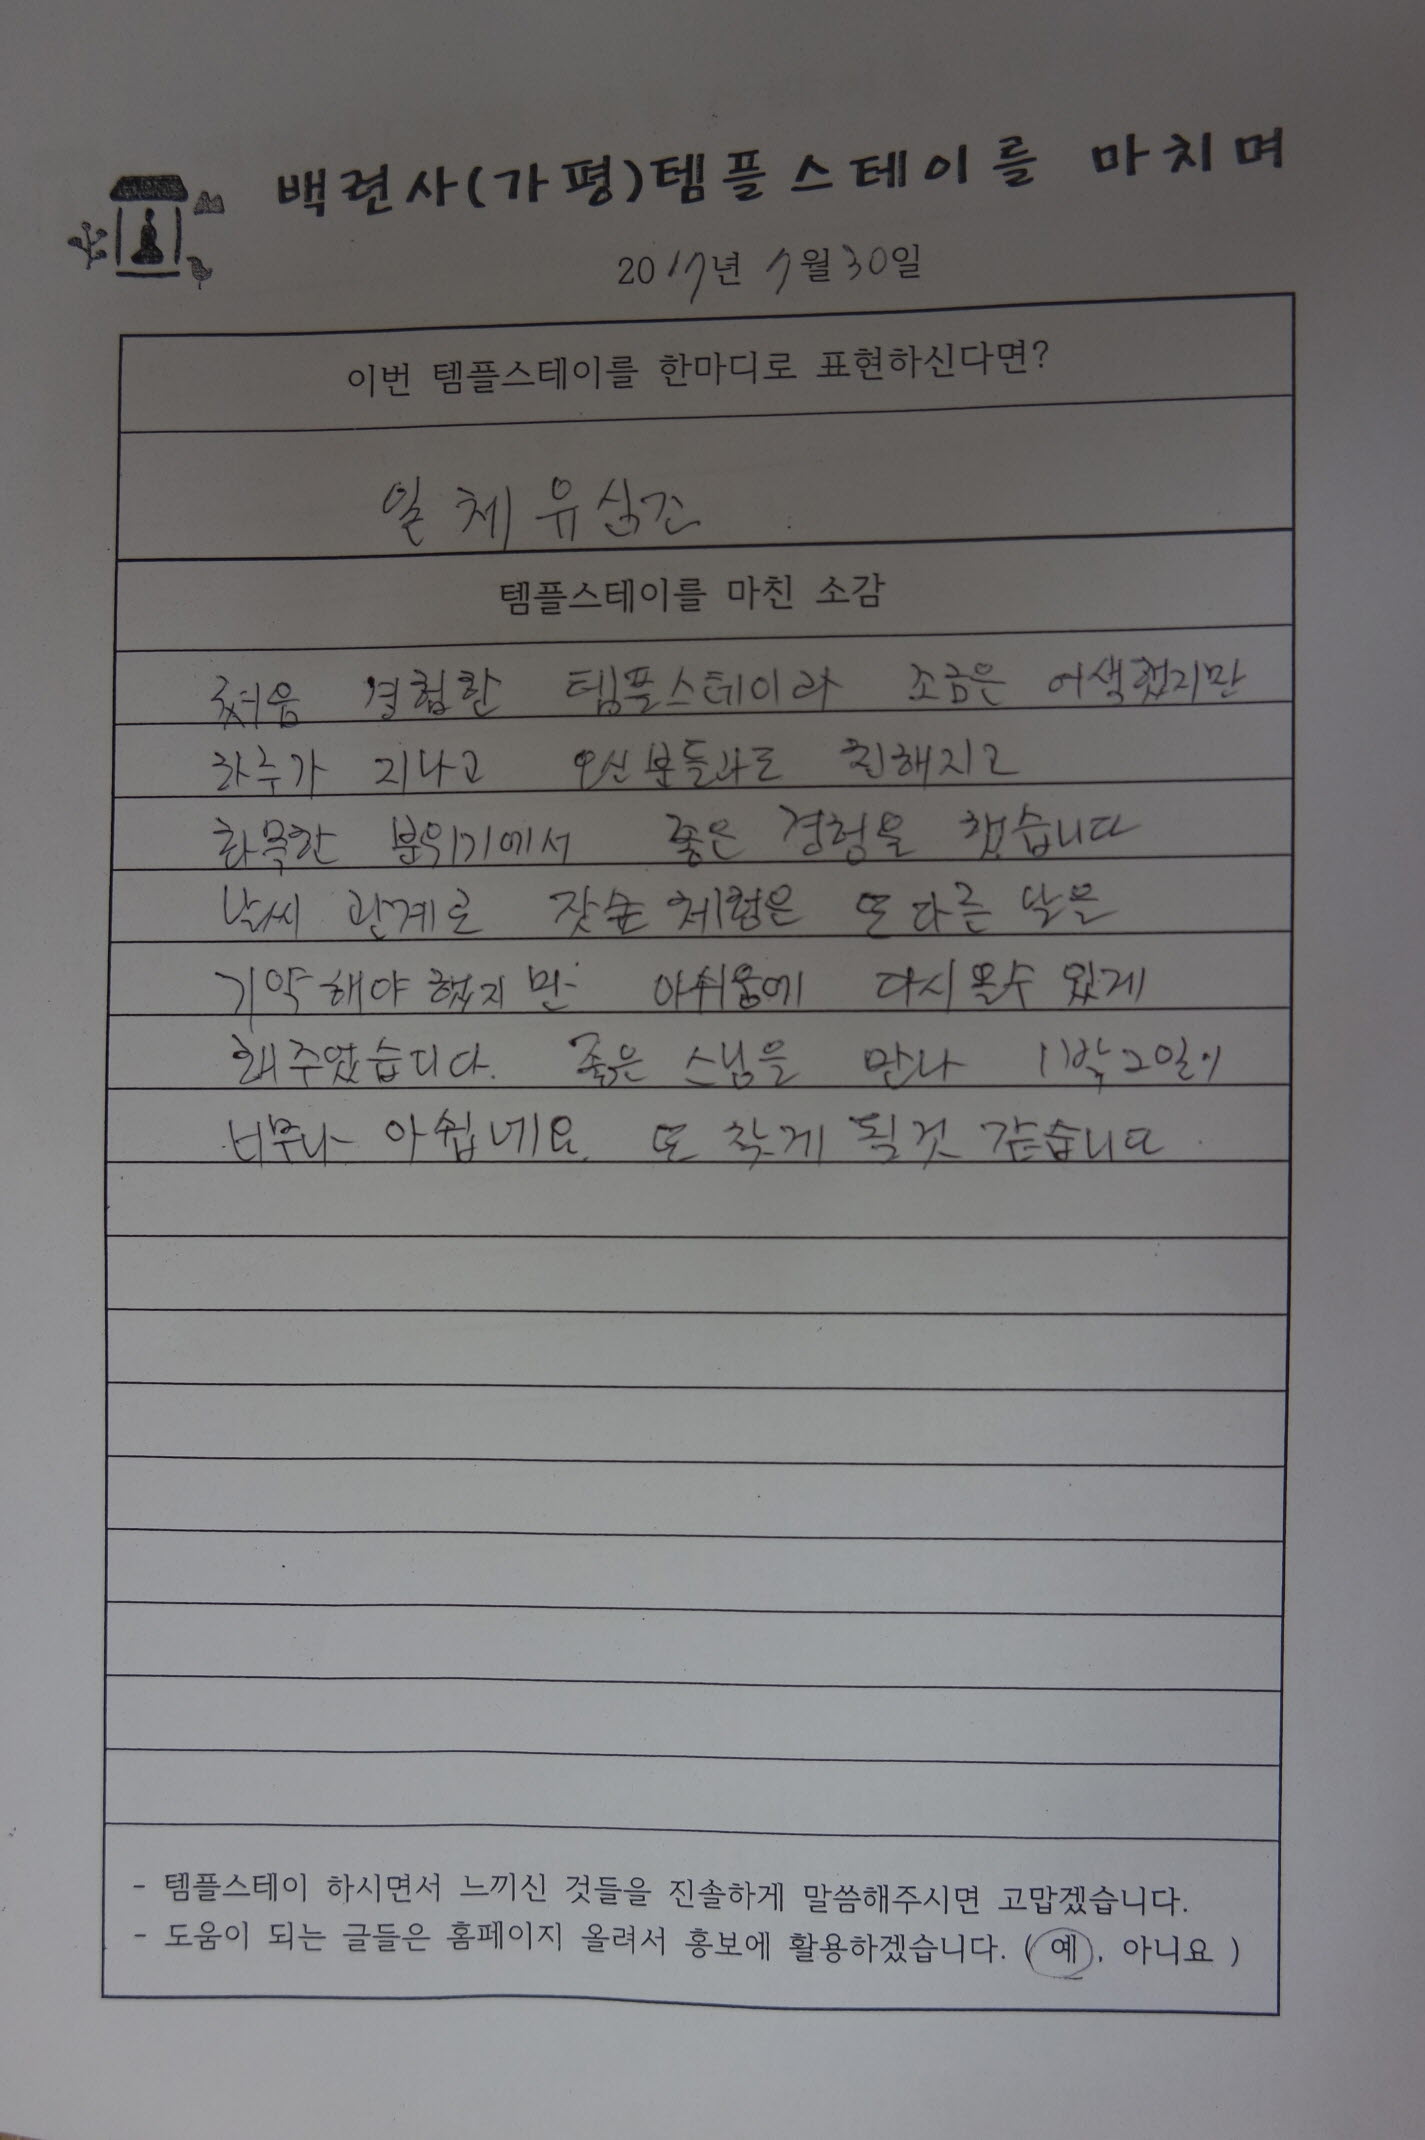 백련사(가평)템플스테이를 마치며
2017년 7월 30일
이번 템플스테이를 한마디로 표현하신다면?
일체유심조
템플스테이를 마친 소감
처음 경험한 템플스테이라 조금은 어색했지만
하루가 지나고 오신분들과도 친해지고
화목한 분위기에서 좋은 경험을 했습니다
날씨 관계로 잣숲 체험은 또 다른 날을
기약해야 했지만 아쉬움에 다시 올수 있게
해주었습니다. 좋은 스님을 만나 1박2일이
너무나 아쉽네요. 또 찾게 될것 같습니다
- 템플스테이 하시면서 느끼신 것들을 진솔하게 말씀해주시면 고맙겠습니다.
- 도움이 되는 글들은 홈페이지 올려서 홍보에 활용하겠습니다. ( 예, 아니요 )